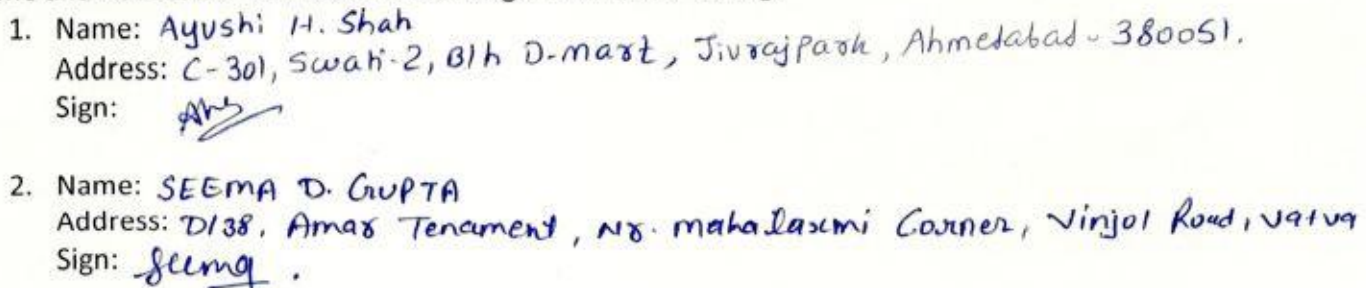 1. Name: Ayushi H. Shah
Address: C-301, Swati-2, B/h D-mart, Jivrajpark, Ahmedabad-380051.
Sign:
2. Name: SEEMA D. GUPTA
Address: D/38, Amar Tenament, Nr. mahalaxmi Corner, Vinjol Road, vatva
Sign: Seema.